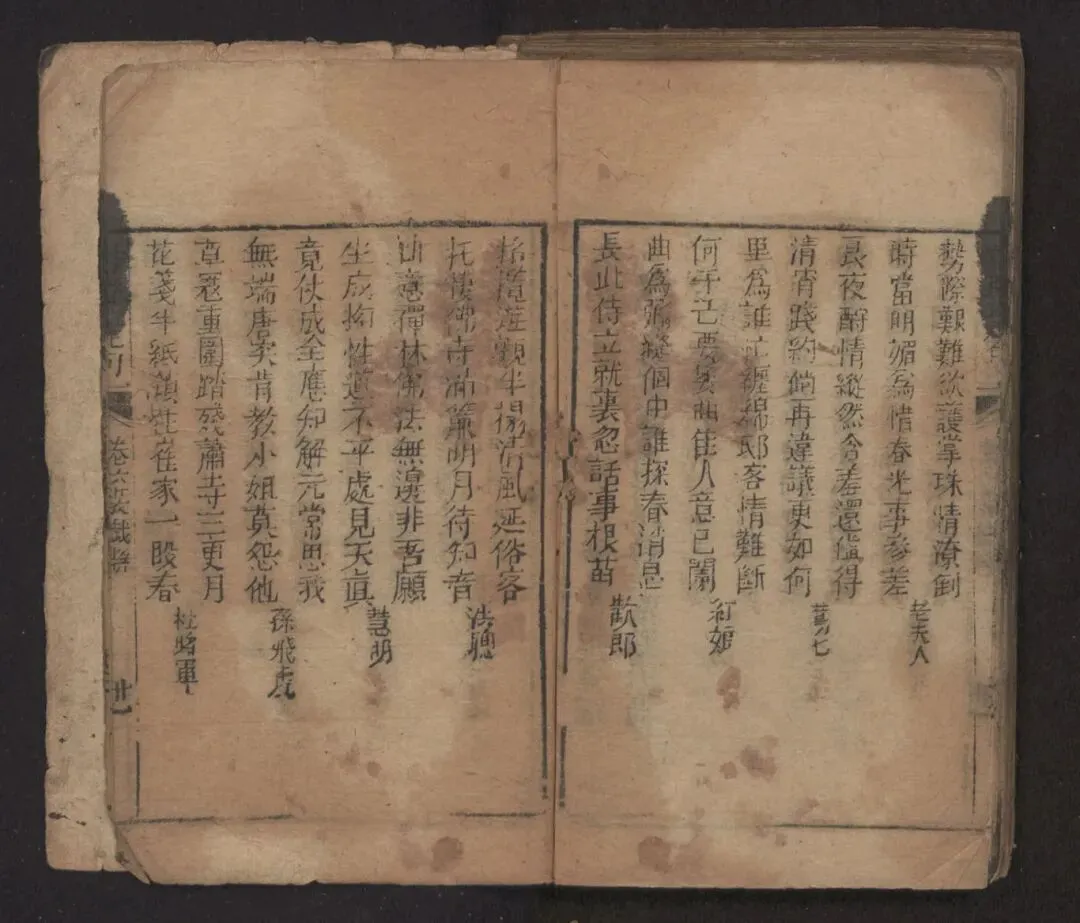 勢際艱難欲護掌珠情潦倒
時當明媚為惜春光事參差
良夜酧情縱然含羞還值得
清宵踐約倘再違議更如何
里為誰忙纏綿邸客情難斷
何干己要委曲佳人意已闌
曲為張癡個中誰探春消息
長此侍立就裏忽話事根苗
老夫人
鶯七
紅娘
歡郎
半榻清風延俗客
托棲佛寺滿簾明月待知音
仙意禪林佛法無邊非吾願
生成拘性道不平處見天真
竟仗成全應知解元常思我
無端唐突肯教小姐莫怨他
草寇重圍踏殘蕭寺三更月
花箋半紙鎖住崔家一段春
法聰
慧明
孫飛虎
杜將軍
卷六
卄